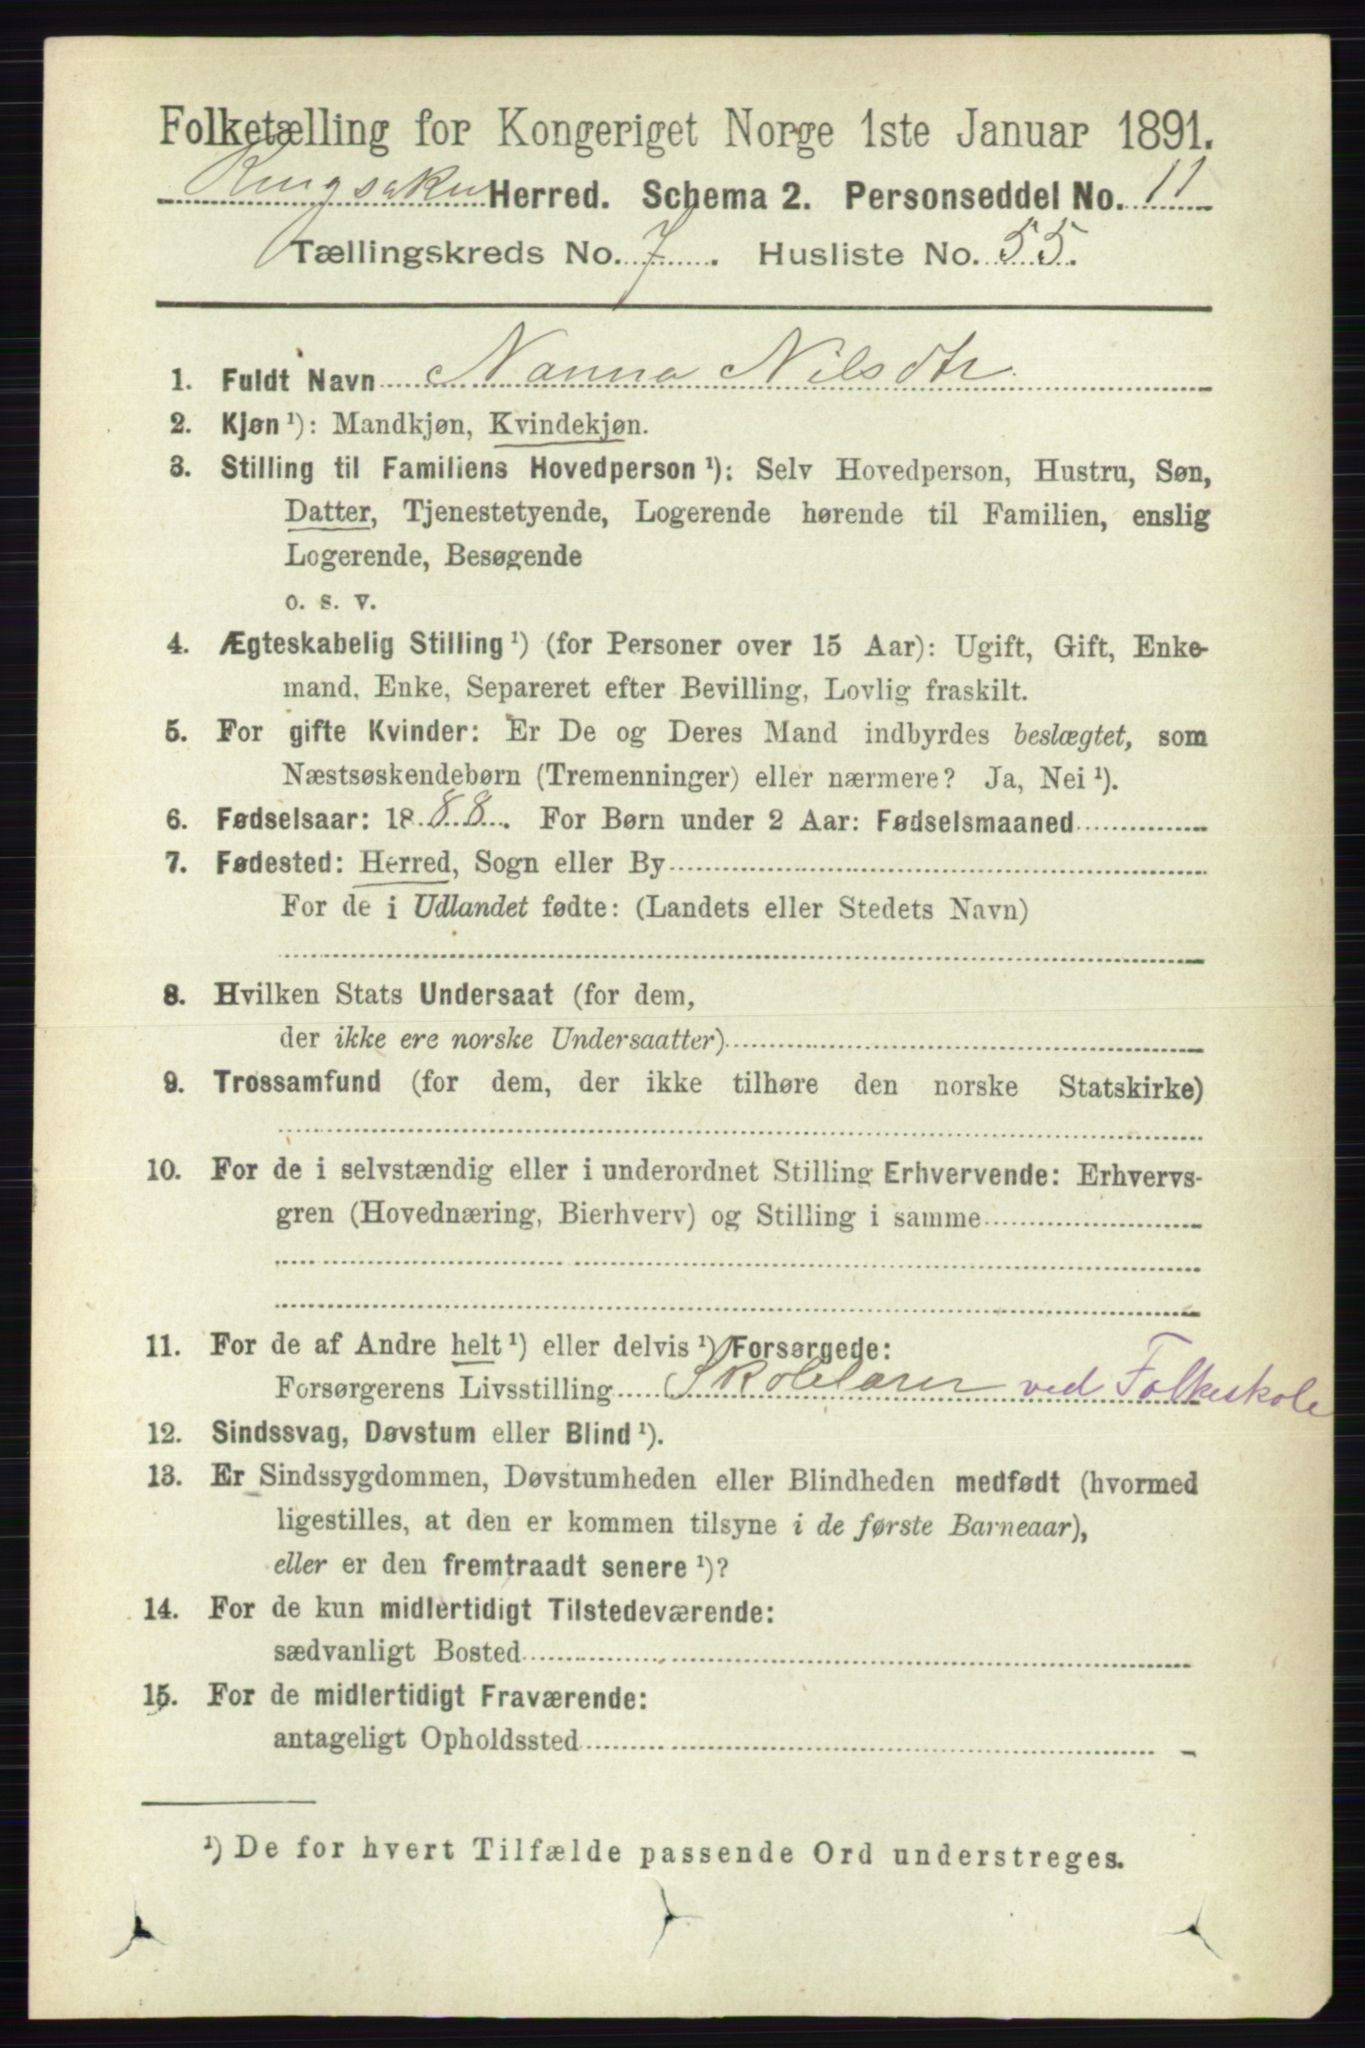 Folketælling for Kongeriget Norge 1ste Januar 1891.
Ringsaker Herred. Schema 2. Personseddel No. 11
Tællingskreds No. 7. Husliste No. 55.
1. Fuldt Navn Nanna Nilsdtr
2. Kjøn ¹): Mandkjøn, Kvindekjøn.
3. Stilling til Familiens Hovedperson ¹): Selv Hovedperson, Hustru, Søn,
Datter, Tjenestetyende, Logerende hørende til Familien, enslig
Logerende, Besøgende
o. s. v.
4. Ægteskabelig Stilling ¹) (for Personer over 15 Aar): Ugift, Gift, Enke-
mand, Enke, Separeret efter Bevilling, Lovlig fraskilt.
5. For gifte Kvinder: Er De og Deres Mand indbyrdes beslægtet, som
Næstsøskendebørn (Tremenninger) eller nærmere? Ja, Nei ¹).
6. Fødselsaar: 1888. For Børn under 2 Aar: Fødselsmaaned
7. Fødested: Herred, Sogn eller By
For de i Udlandet fødte: (Landets eller Stedets Navn)
8. Hvilken Stats Undersaat (for dem,
der ikke ere norske Undersaatter)
9. Trossamfund (for dem, der ikke tilhøre den norske Statskirke)
10. For de i selvstændig eller i underordnet Stilling Erhvervende: Erhvervs-
gren (Hovednæring, Bierhverv) og Stilling i samme
11. For de af Andre helt ¹) eller delvis ¹) Forsørgede:
Forsørgerens Livsstilling Skolelærer ved Folkeskole
12. Sindssvag, Døvstum eller Blind ¹).
13. Er Sindssygdommen, Døvstumheden eller Blindheden medfødt (hvormed
ligestilles, at den er kommen tilsyne i de første Barneaar),
eller er den fremtraadt senere ¹)?
14. For de kun midlertidigt Tilstedeværende:
sædvanligt Bosted
15. For de midlertidigt Fraværende:
antageligt Opholdssted
¹) De for hvert Tilfælde passende Ord understreges.